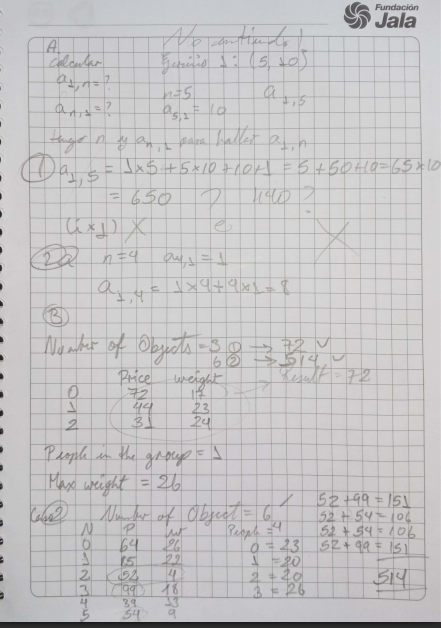 Fundación
Jala
A.
No entiendo!
Calcular
Ejercicio 1: (5, 10)
a1,n = ?
n=5
a1,5
an,1 = ?
a5,1 = 10
tengo n y an,1 para hallar a1,n
① a1,5 = 1x5 + 5x10 + 10+1 = 5 + 50+10 = 65x10
= 650 ? 1140 ?
(1x1) X
2a n=4 a4,1 = 1
a1,4 = 1x4+4x1 = 8
B
Number of Objects = 3 ① → 72 ✓
6 ② → 514 ✓
Price weight
Result = 72
0 72 17
1 44 23
2 31 24
People in the group = 1
Max weight = 26
Caso 2 Number of Object = 6
N P wt
People = 4
0 64 26
1 15 22
2 52 4
3 99 18
4 39 13
5 54 9
0 = 23
1 = 20
2 = 20
3 = 26
52 + 99 = 151
52 + 54 = 106
52 + 54 = 106
52 + 99 = 151
514